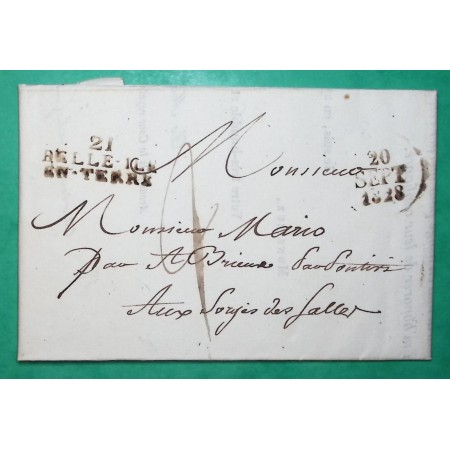 21
BELLE-ILE
EN-TERRE
20
SEPT
1828
Monsieur
Monsieur Mario
Par St Brieux Par Pontivi
Aux forges des Salles